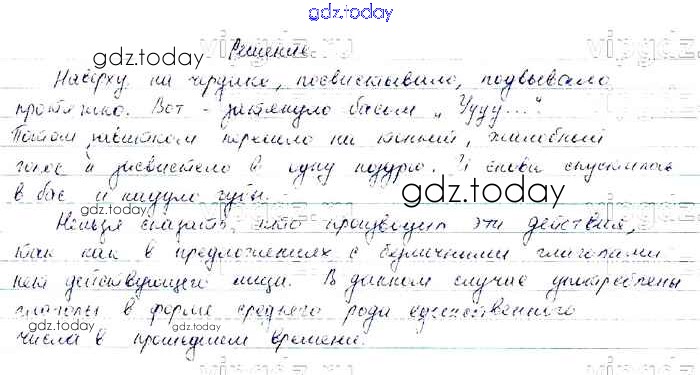 gdz.today
Решение
gdz.today
vipgdz.ru
Наверху, на чердаке, посвистывало, подвывало
протяжно. Вот - затянуло басом „Уууу..."
Потом, шепотком перешло на тонкий, жалобный
голос и засвистело в одну ноздрю. И снова спустилось
в бас и надуло губы.
gdz.today
Нельзя сказать, кто производит эти действия,
так как в предложениях с безличными глаголами
нет действующего лица. В данном случае употреблены
глаголы в форме среднего рода единственного
gdz.today
gdz.today
числа в прошедшем времени.